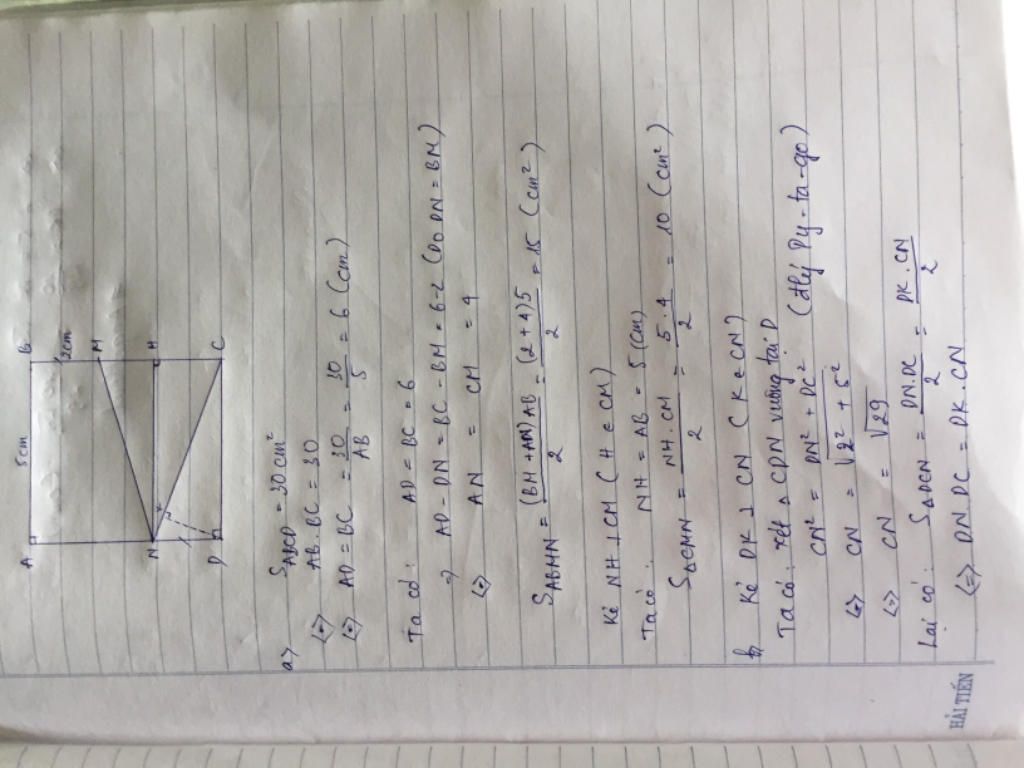 A 5cm B
2cm
M
N H
D C
a> S_ABCD = 30cm²
(=) AB.BC = 30
(=) AD = BC = 30/AB = 30/5 = 6 (cm)
Ta có: AD = BC = 6
=) AD - DN = BC - BM = 6-2 (Do DN = BM)
(=) AN = CM = 4
S_ABMN = (BM+AN)AB/2 = (2+4)5/2 = 15 (cm²)
Kẻ NH ⊥ CM (H ∈ CM)
Ta có: NH = AB = 5 (cm)
S_ΔCMN = NH.CM/2 = 5.4/2 = 10 (cm²)
b, Kẻ DK ⊥ CN (K ∈ CN)
Ta có: xét Δ CDN vuông tại D
CN² = DN² + DC² (Đlý Py-ta-go)
(=) CN = √(2² + 5²)
(=) CN = √29
Lại có: S_ΔDCN = DN.DC/2 = DK.CN/2
(=) DN.DC = DK.CN
HẢI TIẾN